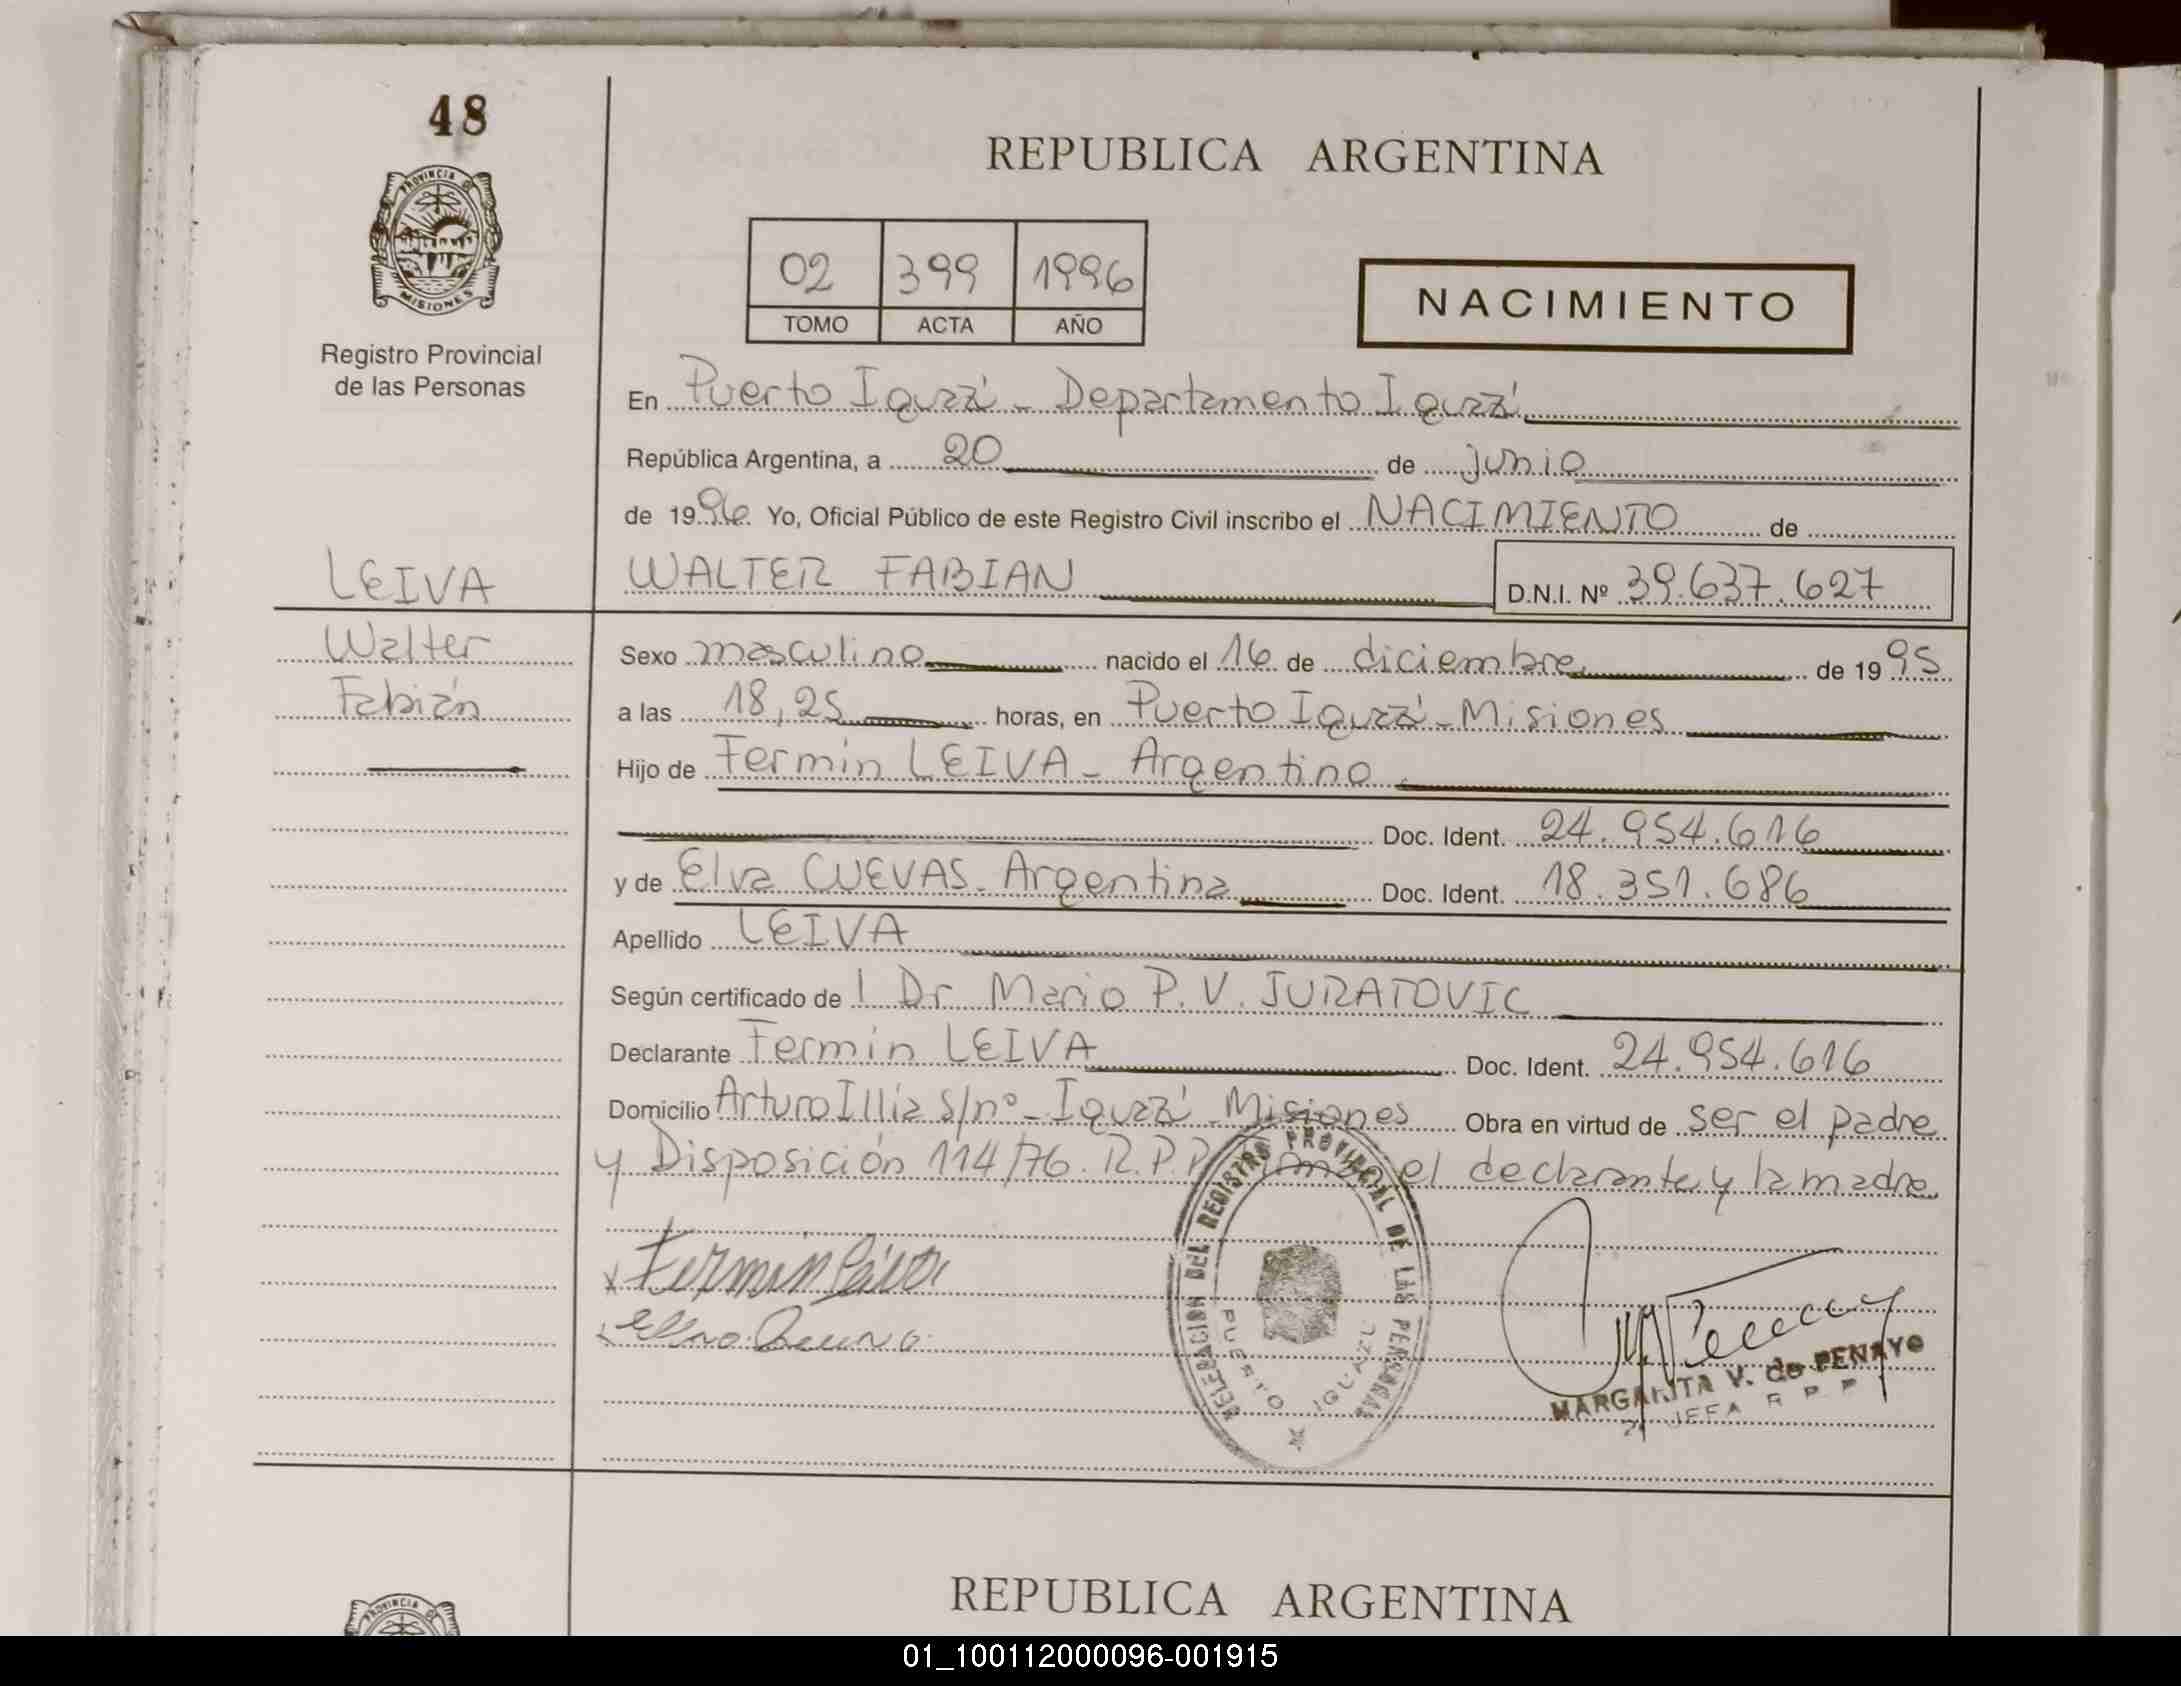 48
PROVINCIA DE
MISIONES
Registro Provincial
de las Personas
REPUBLICA ARGENTINA
02 399 1996
TOMO ACTA AÑO
NACIMIENTO
En Puerto Iguazú - Departamento Iguazú
República Argentina, a 20 de junio
de 1996. Yo, Oficial Público de este Registro Civil inscribo el NACIMIENTO de
LEIVA WALTER FABIAN D.N.I. Nº 39.637.627
Walter Sexo masculino nacido el 16 de diciembre de 1995
Fabián a las 18,25 horas, en Puerto Iguazú - Misiones
Hijo de Fermín LEIVA - Argentino
Doc. Ident. 24.954.616
y de Elva CUEVAS - Argentina Doc. Ident. 18.351.686
Apellido LEIVA
Según certificado de l Dr Mario P. V. JURATOVIC
Declarante Fermín LEIVA Doc. Ident. 24.954.616
Domicilio Arturo Illia s/nº - Iguazú - Misiones Obra en virtud de ser el padre
y Disposición 114/76. R.P.P. el declarante y la madre
Fermin Leiva
DELEGACION DEL REGISTRO PROVINCIAL DE LAS PERSONAS
PUERTO IGUAZU
MARGARITA V. de PENAYO
JEFA R P P
REPUBLICA ARGENTINA
PROVINCIA DE
01_100112000096-001915